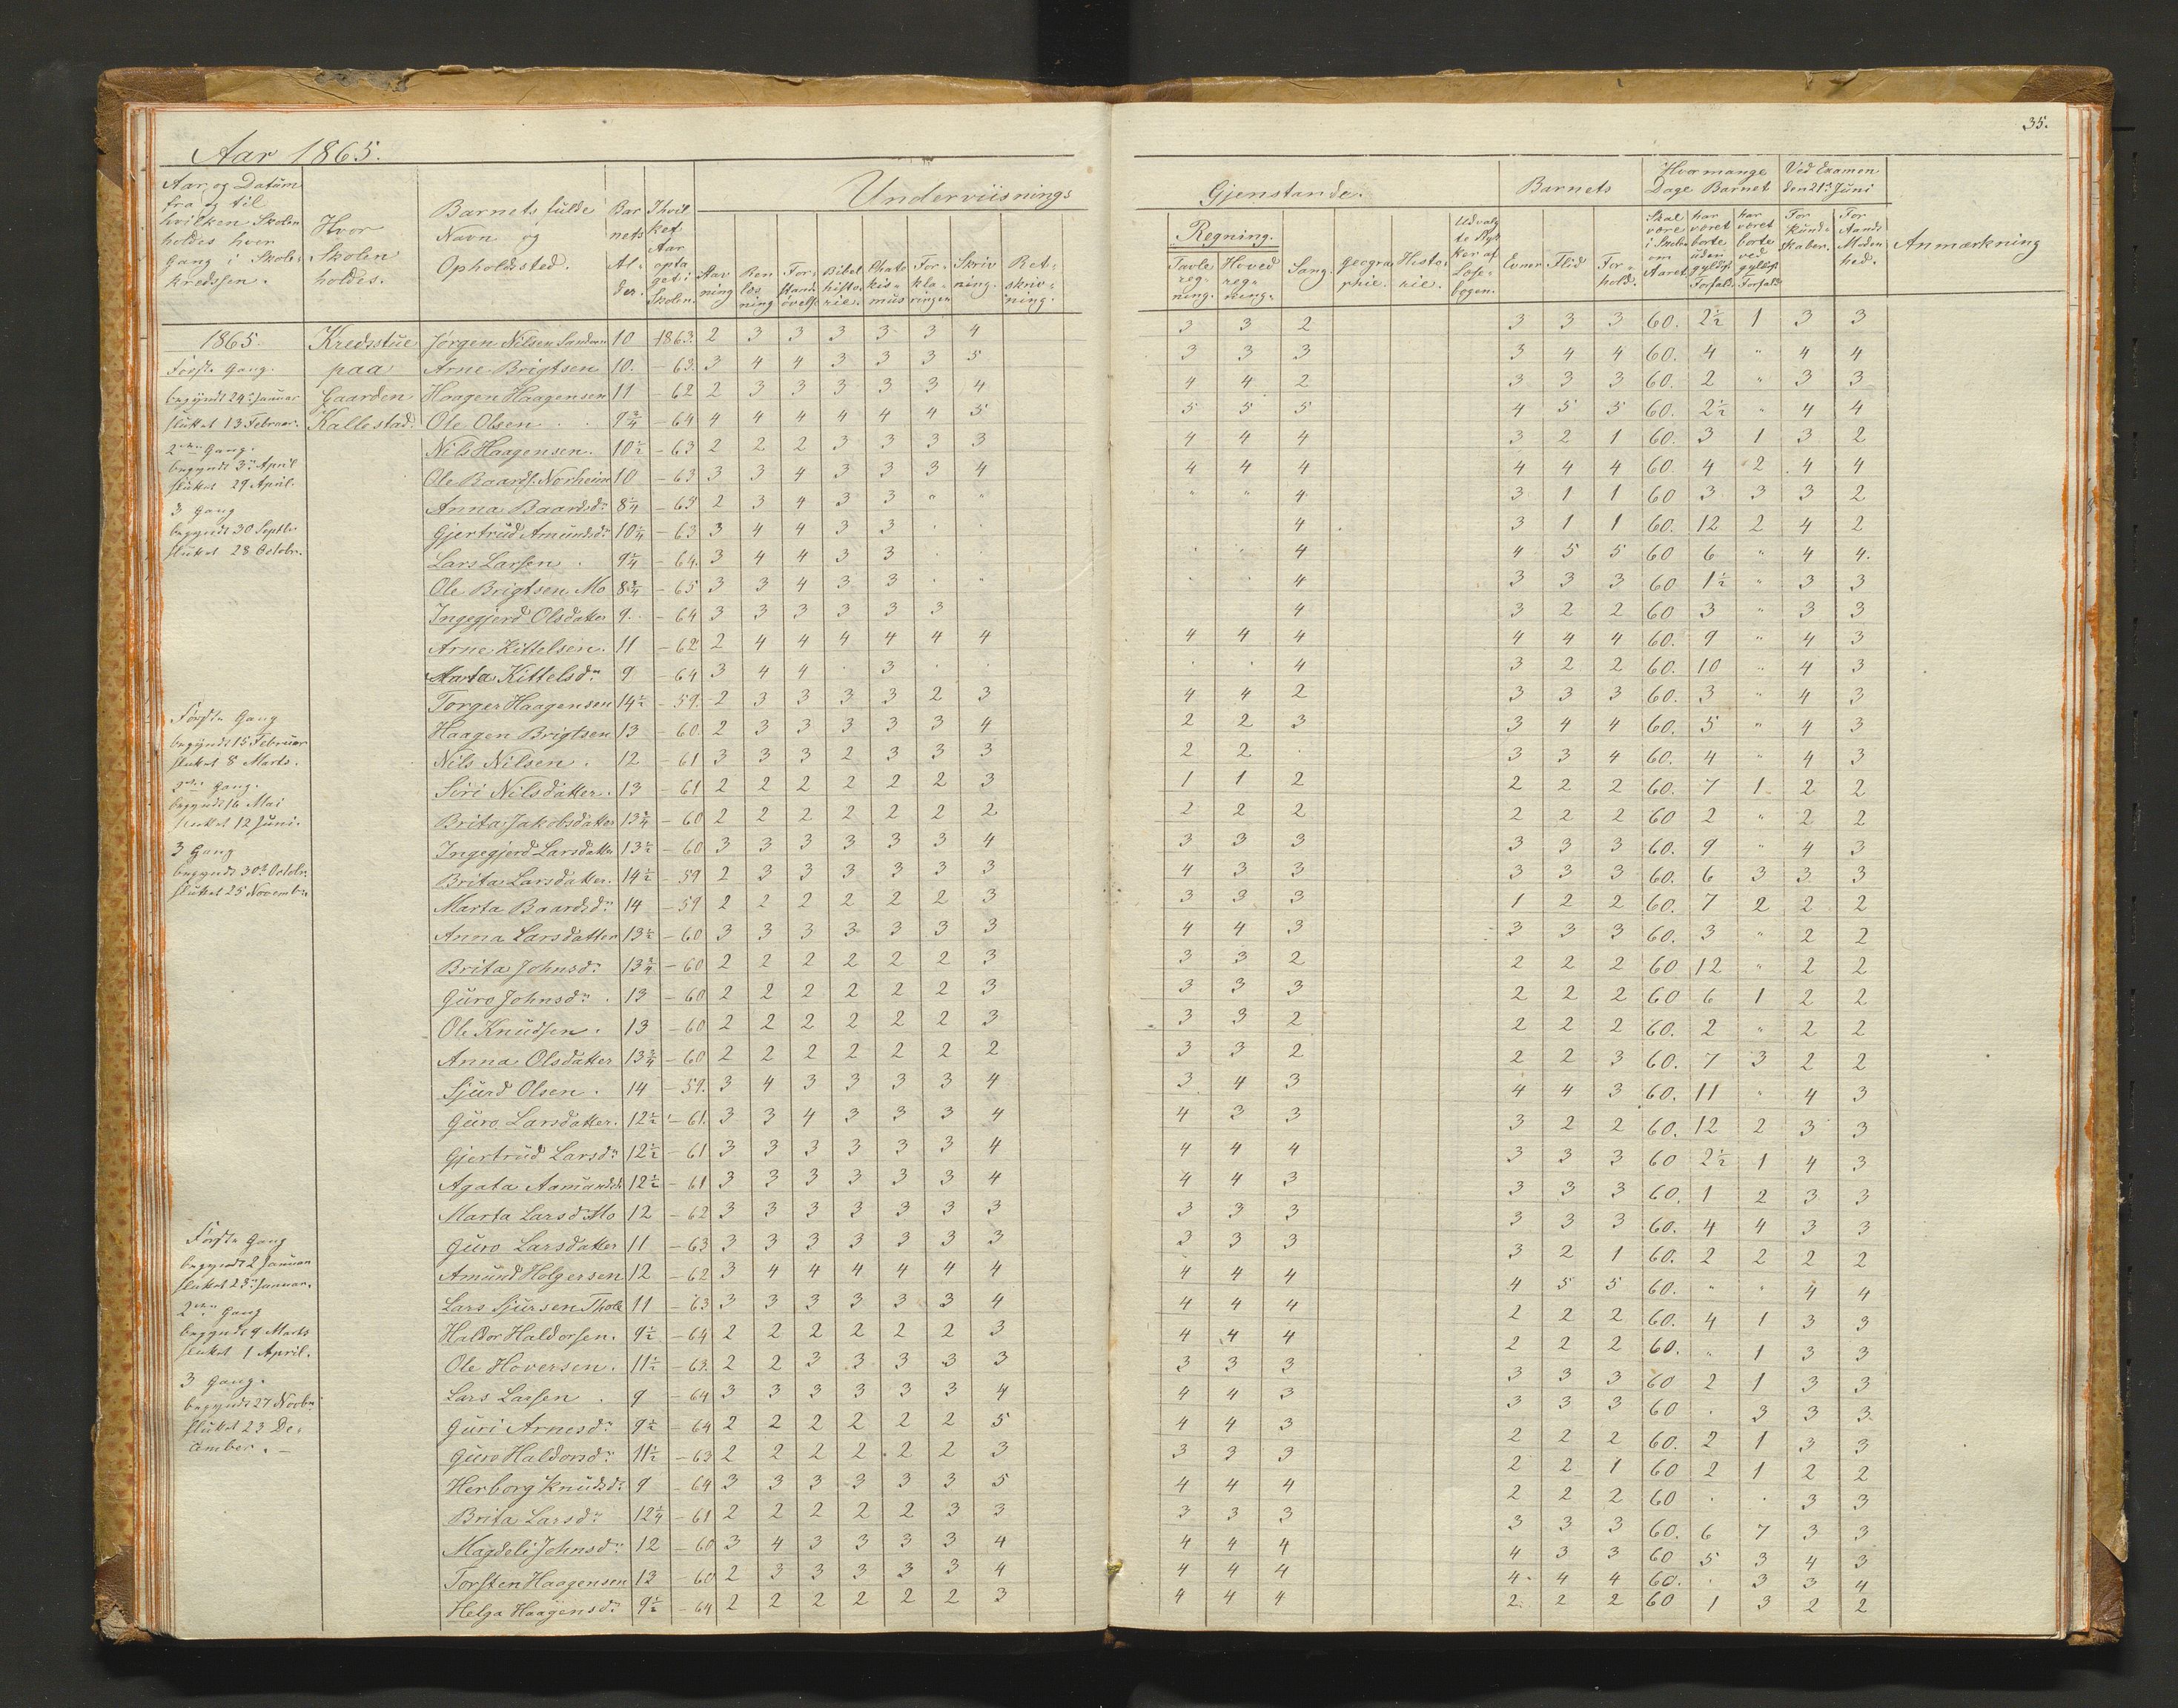 35.
Aar 1865.
Aar og Datum fra og til hvilken Skolen holdes hver Gang i Skolekredssen.
Hvor Skolen holdes.
Barnets fulde Navn og Opholdssted.
Barnets Alder.
I hvilket Aar optaget i Skolen.
Underviisnings Gjenstande.
Ren læsning
Forstandsövelse
Bibelhistorie.
Skrivning.
Retskrivning.
Regning.
Tavleregning.
Hovedregning.
Sang.
Geographie.
Historie.
Udvalgte Stykker af Læsebogen.
Barnets
Evner
Flid
Forhold.
Hvor mange Dage Barnet
Skal være i Skolen om Aaret.
har været borte uden gyldigt Forfald.
har været borte ved gyldigt Forfald.
Ved Examen den 21de Juni
For Kundskaber.
For Modenhed.
Anmærkning
1865. Kredsstue Jørgen Nilsen Sandven 10 1863. 2 3 3 3 3 3 4 3 3 2 3 3 3 60. 2½ 1 3 3
Første Gang. paa Arne Brigtsen 10. - 63. 3 4 4 3 3 3 5 3 3 3 3 4 4 60. 4 " 4 4
begyndt 24de Januar Gaarden Haagen Haagensen 11 - 62 2 3 3 3 3 3 4 4 4 2 3 3 3 60. 2 " 3 3
sluttet 13 Februar. Kallestad. Ole Olsen 9¾ - 64 4 4 4 4 4 4 5 5 5 5 4 5 5 60. 2½ " 4 4
2den Gang. Nils Haagensen. 10½ - 63 2 2 2 3 3 3 3 4 4 4 3 2 1 60. 3 1 3 2
begyndt 3die April
sluttet 29 April. Ole Baards. Norheim 10 - 63 3 3 4 3 3 3 4 4 4 4 4 4 4 60. 4 2 4 4
3 Gang Anna Baardsdr 8¼ - 63 2 3 4 3 3 " " " " 4 3 1 1 60 3 3 3 2
begyndt 30 Septbr. Gjertrud Amundsdr 10¼ - 63 3 4 4 3 3 4 3 1 1 60. 12 2 4 2
sluttet 28 Octobr. Lars Larsen 9¼ - 64. 3 4 4 3 3 4 4 5 5 60 6 " 4 4.
Ole Brigtsen Mo 8¾ - 65 3 3 4 3 3 4 3 3 3 60 1½ " 3 3
Ingegjerd Olsdatter 9. - 64 3 3 3 3 3 3 4 3 2 2 60 3 " 3 3
Arne Kittelsen. 11 - 62 2 4 4 4 4 4 4 4 4 4 4 4 4 60. 9 " 4 3
Marta Kittelsdr 9 - 64 3 4 4 3 4 3 2 2 60. 10 " 4 3
Torger Haagensen 14½ - 59. 2 3 3 3 3 2 3 4 4 2 3 3 3 60. 3 " 4 3
Første Gang Haagen Brigtsen 13 - 60. 2 3 3 3 3 3 4 2 2 3 3 4 4 60. 5 " 4 3
begyndt 15 Februar
sluttet 8 Marts. Nils Nilsen. 12 - 61 3 3 3 2 3 3 3 2 2 3 3 4 60. 4 " 4 3
2den Gang. Siri Nilsdatter. 13 - 61 2 2 2 2 2 2 3 1 1 2 2 2 2 60. 7 1 2 2
begyndt 16 Mai
sluttet 12 Juni. Brita Jakobsdatter 13¾ - 60 2 2 2 2 2 2 2 2 2 2 2 2 2 60 2 " 2 2
3 Gang Ingegjerd Larsdatter 13½ - 60 3 3 3 3 3 3 4 3 3 3 3 3 3 60. 9 " 4 3
begyndt 30te Octobr. Brita Larsdatter. 14½ - 59 2 3 3 3 3 3 3 4 3 3 3 3 3 60. 6 3 3 3
sluttet 25 Novembr. Marta Baardsdr 14 - 59 2 2 2 2 2 2 3 3 3 3 1 2 2 60. 7 2 2 2
Anna Larsdatter 13½ - 60 3 3 3 3 3 3 3 4 4 3 3 3 3 60. 3 " 2 2
Brita Johnsdr 13¾ - 60 2 2 2 2 2 2 3 3 3 2 2 2 2 60 12 " 2 2
Guro Johnsdr. 13 - 60 2 2 2 2 2 2 3 3 3 3 2 2 2 60 6 1 2 2
Ole Knudsen. 13 - 60 2 2 2 2 2 2 3 3 3 2 2 2 2 60. 2 " 2 2
Anna Olsdatter 13¾ - 60 2 2 2 2 2 2 2 3 3 2 2 2 3 60. 7 3 2 2
Sjurd Olsen. 14 - 59. 3 4 3 3 3 3 4 3 4 3 4 4 3 60. 11 " 4 3
Guro Larsdatter. 12½ - 61. 3 3 4 3 3 3 4 4 3 3 3 2 2 60. 12 2 3 3
Gjertrud Larsdr 12½ - 61 3 3 3 3 3 3 4 4 4 4 3 3 3 60 2½ 1 4 3
Agata Aamundsdr 12½ - 61 3 3 3 3 3 3 4 4 4 3 3 3 3 60. 1 2 3 3
Marta Larsdr Mo 12 - 62 3 3 3 3 3 3 3 3 3 3 3 3 3 60. 4 4 3 3
Første Gang Guro Larsdatter 11 - 63 3 3 3 3 3 3 3 3 3 3 3 2 1 60. 2 2 2 2
begyndt 2 Januar
sluttet Januar. Amund Holgersen 12 - 62 3 4 4 4 4 4 4 4 4 4 4 5 5 60. " " 4 4
2den Gang Lars Sjursen 11 - 63 3 3 3 3 3 3 4 4 4 4 2 2 2 60. 4 1 3 3
begyndt 9 Marts Haldor Haldorsen. 9½ - 64 2 2 2 2 2 2 3 4 4 4 2 2 2 60. " 1 3 3
sluttet 1 April. Ole Hoversen. 11½ - 63. 2 2 3 3 3 3 3 3 3 3 3 3 3 60 2 1 3 3
3 Gang. Lars Larsen 9 - 64 3 3 3 3 3 3 4 4 4 3 3 3 3 60 3 3 3
begyndt 27 Novbr Guri Arnesdr 9½ - 64 2 2 2 2 2 2 5 4 4 3 2 2 2 60. 2 1 3 3
sluttet 23 De- Guro Haldorsdr 11½ - 63 2 2 2 2 2 2 3 3 3 3 2 2 1 60 2 1 2 2
cember. - Herborg Knudsdr 9 - 64 3 3 3 3 3 3 5 4 4 4 2 2 2 60 3 3
Brita Larsdr 12¼ - 61 2 2 2 2 2 3 3 3 3 3 3 3 3 60. 6 7 3 3
Magdeli Johnsdr 12 - 60 3 4 3 3 3 3 4 4 4 4 4 3 3 60 5 3 4 3
Torsten Haagensen 13 - 60 2 3 3 3 3 3 4 4 4 4 4 4 4 60. 3 3 4
Helga Haagensdr 9½ - 64 2 2 2 2 2 2 3 4 4 4 2 2 2 60 1 3 2 2